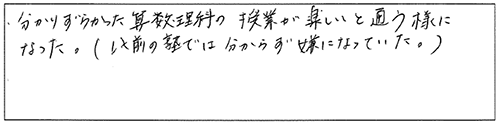 ・分かりずらかった算数理科の授業が楽しいと通う様に
なった。(以前の塾では分からず嫌になっていた。)